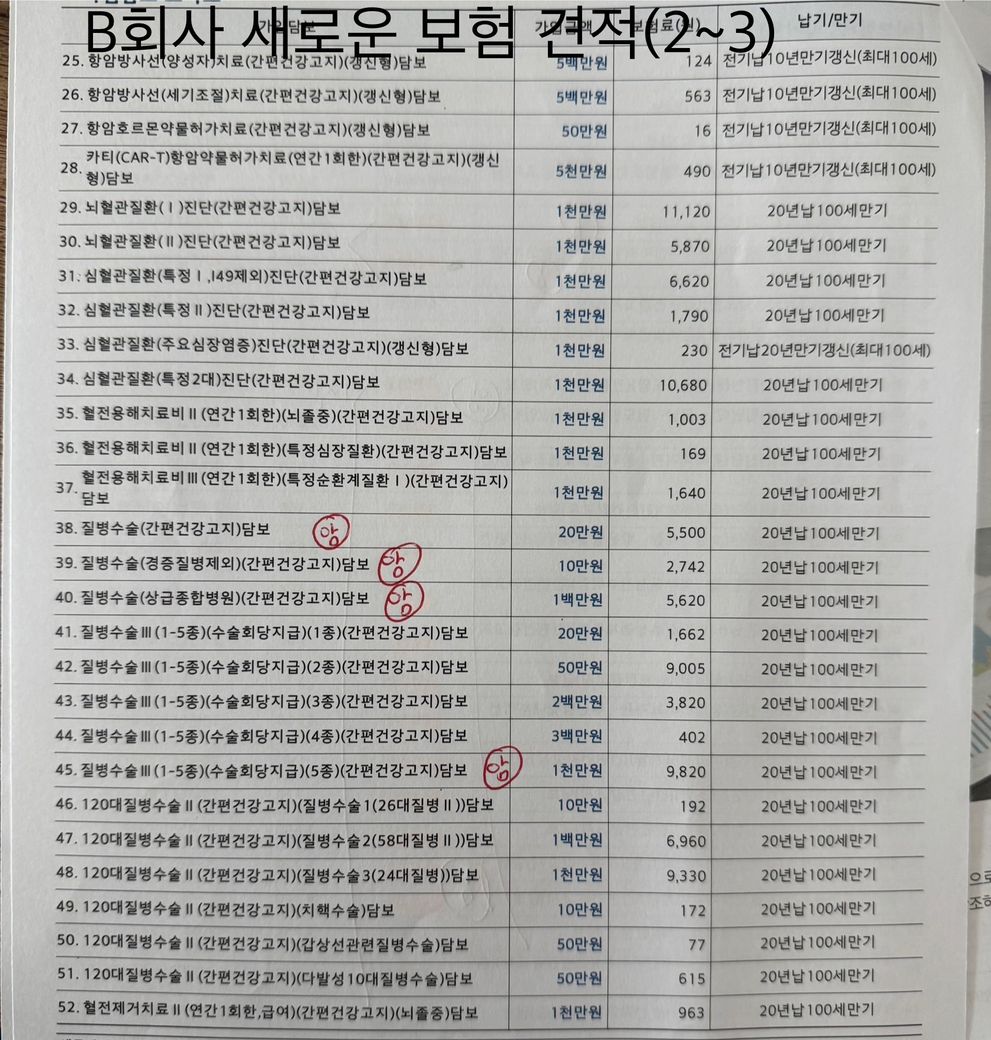 B회사 새로운 보험 견적(2~3)
가입담보 가입금액 보험료(원) 납기/만기
25. 항암방사선(양성자)치료(간편건강고지)(갱신형)담보 5백만원 124 전기납10년만기갱신(최대100세)
26. 항암방사선(세기조절)치료(간편건강고지)(갱신형)담보 5백만원 563 전기납10년만기갱신(최대100세)
27. 항암호르몬약물허가치료(간편건강고지)(갱신형)담보 50만원 16 전기납10년만기갱신(최대100세)
28. 카티(CAR-T)항암약물허가치료(연간1회한)(간편건강고지)(갱신
형)담보 5천만원 490 전기납10년만기갱신(최대100세)
29. 뇌혈관질환(Ⅰ)진단(간편건강고지)담보 1천만원 11,120 20년납100세만기
30. 뇌혈관질환(Ⅱ)진단(간편건강고지)담보 1천만원 5,870 20년납100세만기
31. 심혈관질환(특정Ⅰ,I49제외)진단(간편건강고지)담보 1천만원 6,620 20년납100세만기
32. 심혈관질환(특정Ⅱ)진단(간편건강고지)담보 1천만원 1,790 20년납100세만기
33. 심혈관질환(주요심장염증)진단(간편건강고지)(갱신형)담보 1천만원 230 전기납20년만기갱신(최대100세)
34. 심혈관질환(특정2대)진단(간편건강고지)담보 1천만원 10,680 20년납100세만기
35. 혈전용해치료비Ⅱ(연간1회한)(뇌졸중)(간편건강고지)담보 1천만원 1,003 20년납100세만기
36. 혈전용해치료비Ⅱ(연간1회한)(특정심장질환)(간편건강고지)담보 1천만원 169 20년납100세만기
37. 혈전용해치료비Ⅲ(연간1회한)(특정순환계질환Ⅰ)(간편건강고지)
담보 1천만원 1,640 20년납100세만기
38. 질병수술(간편건강고지)담보 암 20만원 5,500 20년납100세만기
39. 질병수술(경증질병제외)(간편건강고지)담보 암 10만원 2,742 20년납100세만기
40. 질병수술(상급종합병원)(간편건강고지)담보 암 1백만원 5,620 20년납100세만기
41. 질병수술Ⅲ(1-5종)(수술회당지급)(1종)(간편건강고지)담보 20만원 1,662 20년납100세만기
42. 질병수술Ⅲ(1-5종)(수술회당지급)(2종)(간편건강고지)담보 50만원 9,005 20년납100세만기
43. 질병수술Ⅲ(1-5종)(수술회당지급)(3종)(간편건강고지)담보 2백만원 3,820 20년납100세만기
44. 질병수술Ⅲ(1-5종)(수술회당지급)(4종)(간편건강고지)담보 3백만원 402 20년납100세만기
45. 질병수술Ⅲ(1-5종)(수술회당지급)(5종)(간편건강고지)담보 암 1천만원 9,820 20년납100세만기
46. 120대질병수술Ⅱ(간편건강고지)(질병수술1(26대질병Ⅱ))담보 10만원 192 20년납100세만기
47. 120대질병수술Ⅱ(간편건강고지)(질병수술2(58대질병Ⅱ))담보 1백만원 6,960 20년납100세만기
48. 120대질병수술Ⅱ(간편건강고지)(질병수술3(24대질병))담보 1천만원 9,330 20년납100세만기
49. 120대질병수술Ⅱ(간편건강고지)(치핵수술)담보 10만원 172 20년납100세만기
50. 120대질병수술Ⅱ(간편건강고지)(갑상선관련질병수술)담보 50만원 77 20년납100세만기
51. 120대질병수술Ⅱ(간편건강고지)(다발성10대질병수술)담보 50만원 615 20년납100세만기
52. 혈전제거치료Ⅱ(연간1회한,급여)(간편건강고지)(뇌졸중)담보 1천만원 963 20년납100세만기